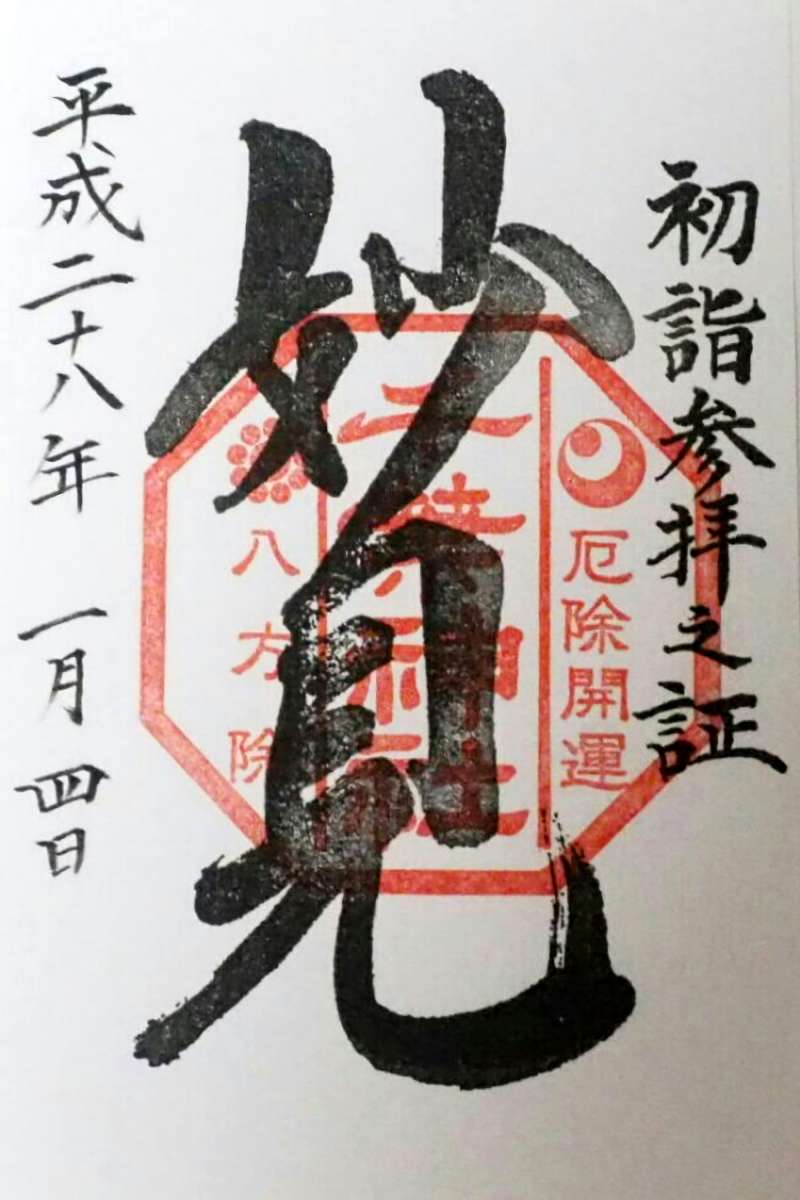 初詣参拝之証
妙見
平成二十八年 一月四日
厄除開運
千葉神社
八方除